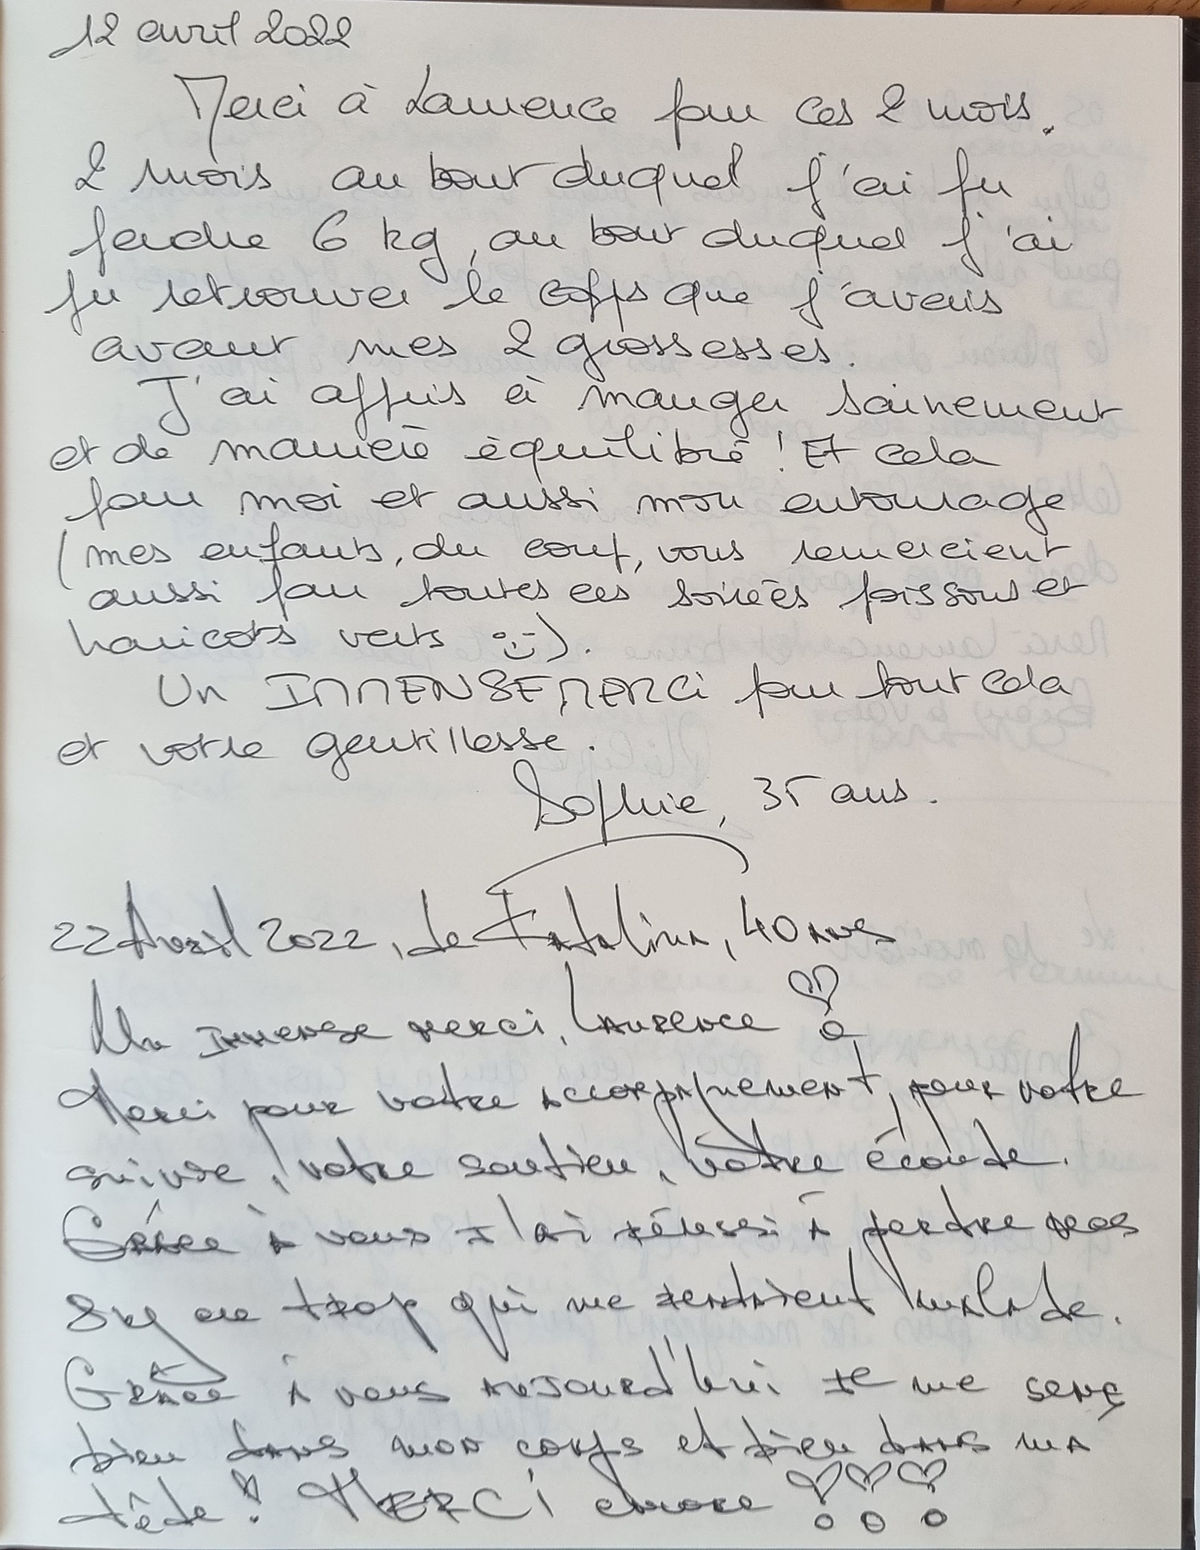 12 avril 2022
Merci à Laurence pour ces 2 mois.
2 mois au bout duquel j'ai pu
perdre 6 kg, au bout duquel j'ai
pu retrouver le corps que j'avais
avant mes 2 grossesses.
J'ai appris à manger sainement
et de manière équilibré ! Et cela
pour moi et aussi mon entourage
(mes enfants, du coup, vous remercient
aussi pour toutes ces soirées poissons et
haricots verts :-)).
Un IMMENSE MERCI pour tout cela
et votre gentillesse.
Sophie, 35 ans.
22 Avril 2022, de Katalina, 40 ans
Un immense merci, Laurence
Merci pour votre accompagnement, pour votre
suivie, votre soutien, votre écoute.
Grâce à vous j'ai réussi à perdre mes
8 kg en trop qui me rendaient malade.
Grâce à vous aujourd'hui je me sens
bien dans mon corps et bien dans ma
tête ! MERCI encore